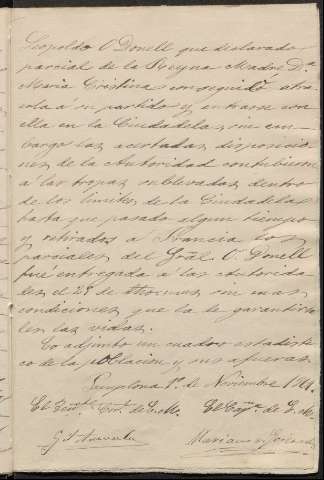 Leopoldo O Donell que declarado
parcial de la Reyna Madre D.ª
Maria Cristina consiguió atra
erla á su partido y entrarse con
ella en la Ciudadela, sin em-
bargo las acertadas disposicio
nes de la Autoridad contubieron
á las tropas sublevadas dentro
de los límites de la Ciudadela
hasta que pasado algun tiempo
y retirados á Francia los
parciales del Gral. O Donell
fué entregada á las Autorida
des el 2º de sin mas
condiciones que la de garantirse
les las vidas.
Va adjunto un cuadro estadisti
co de la poblacion y sus afueras.
Pamplona 1º de Noviembre
El de E. M. El de E. M.
Mariano